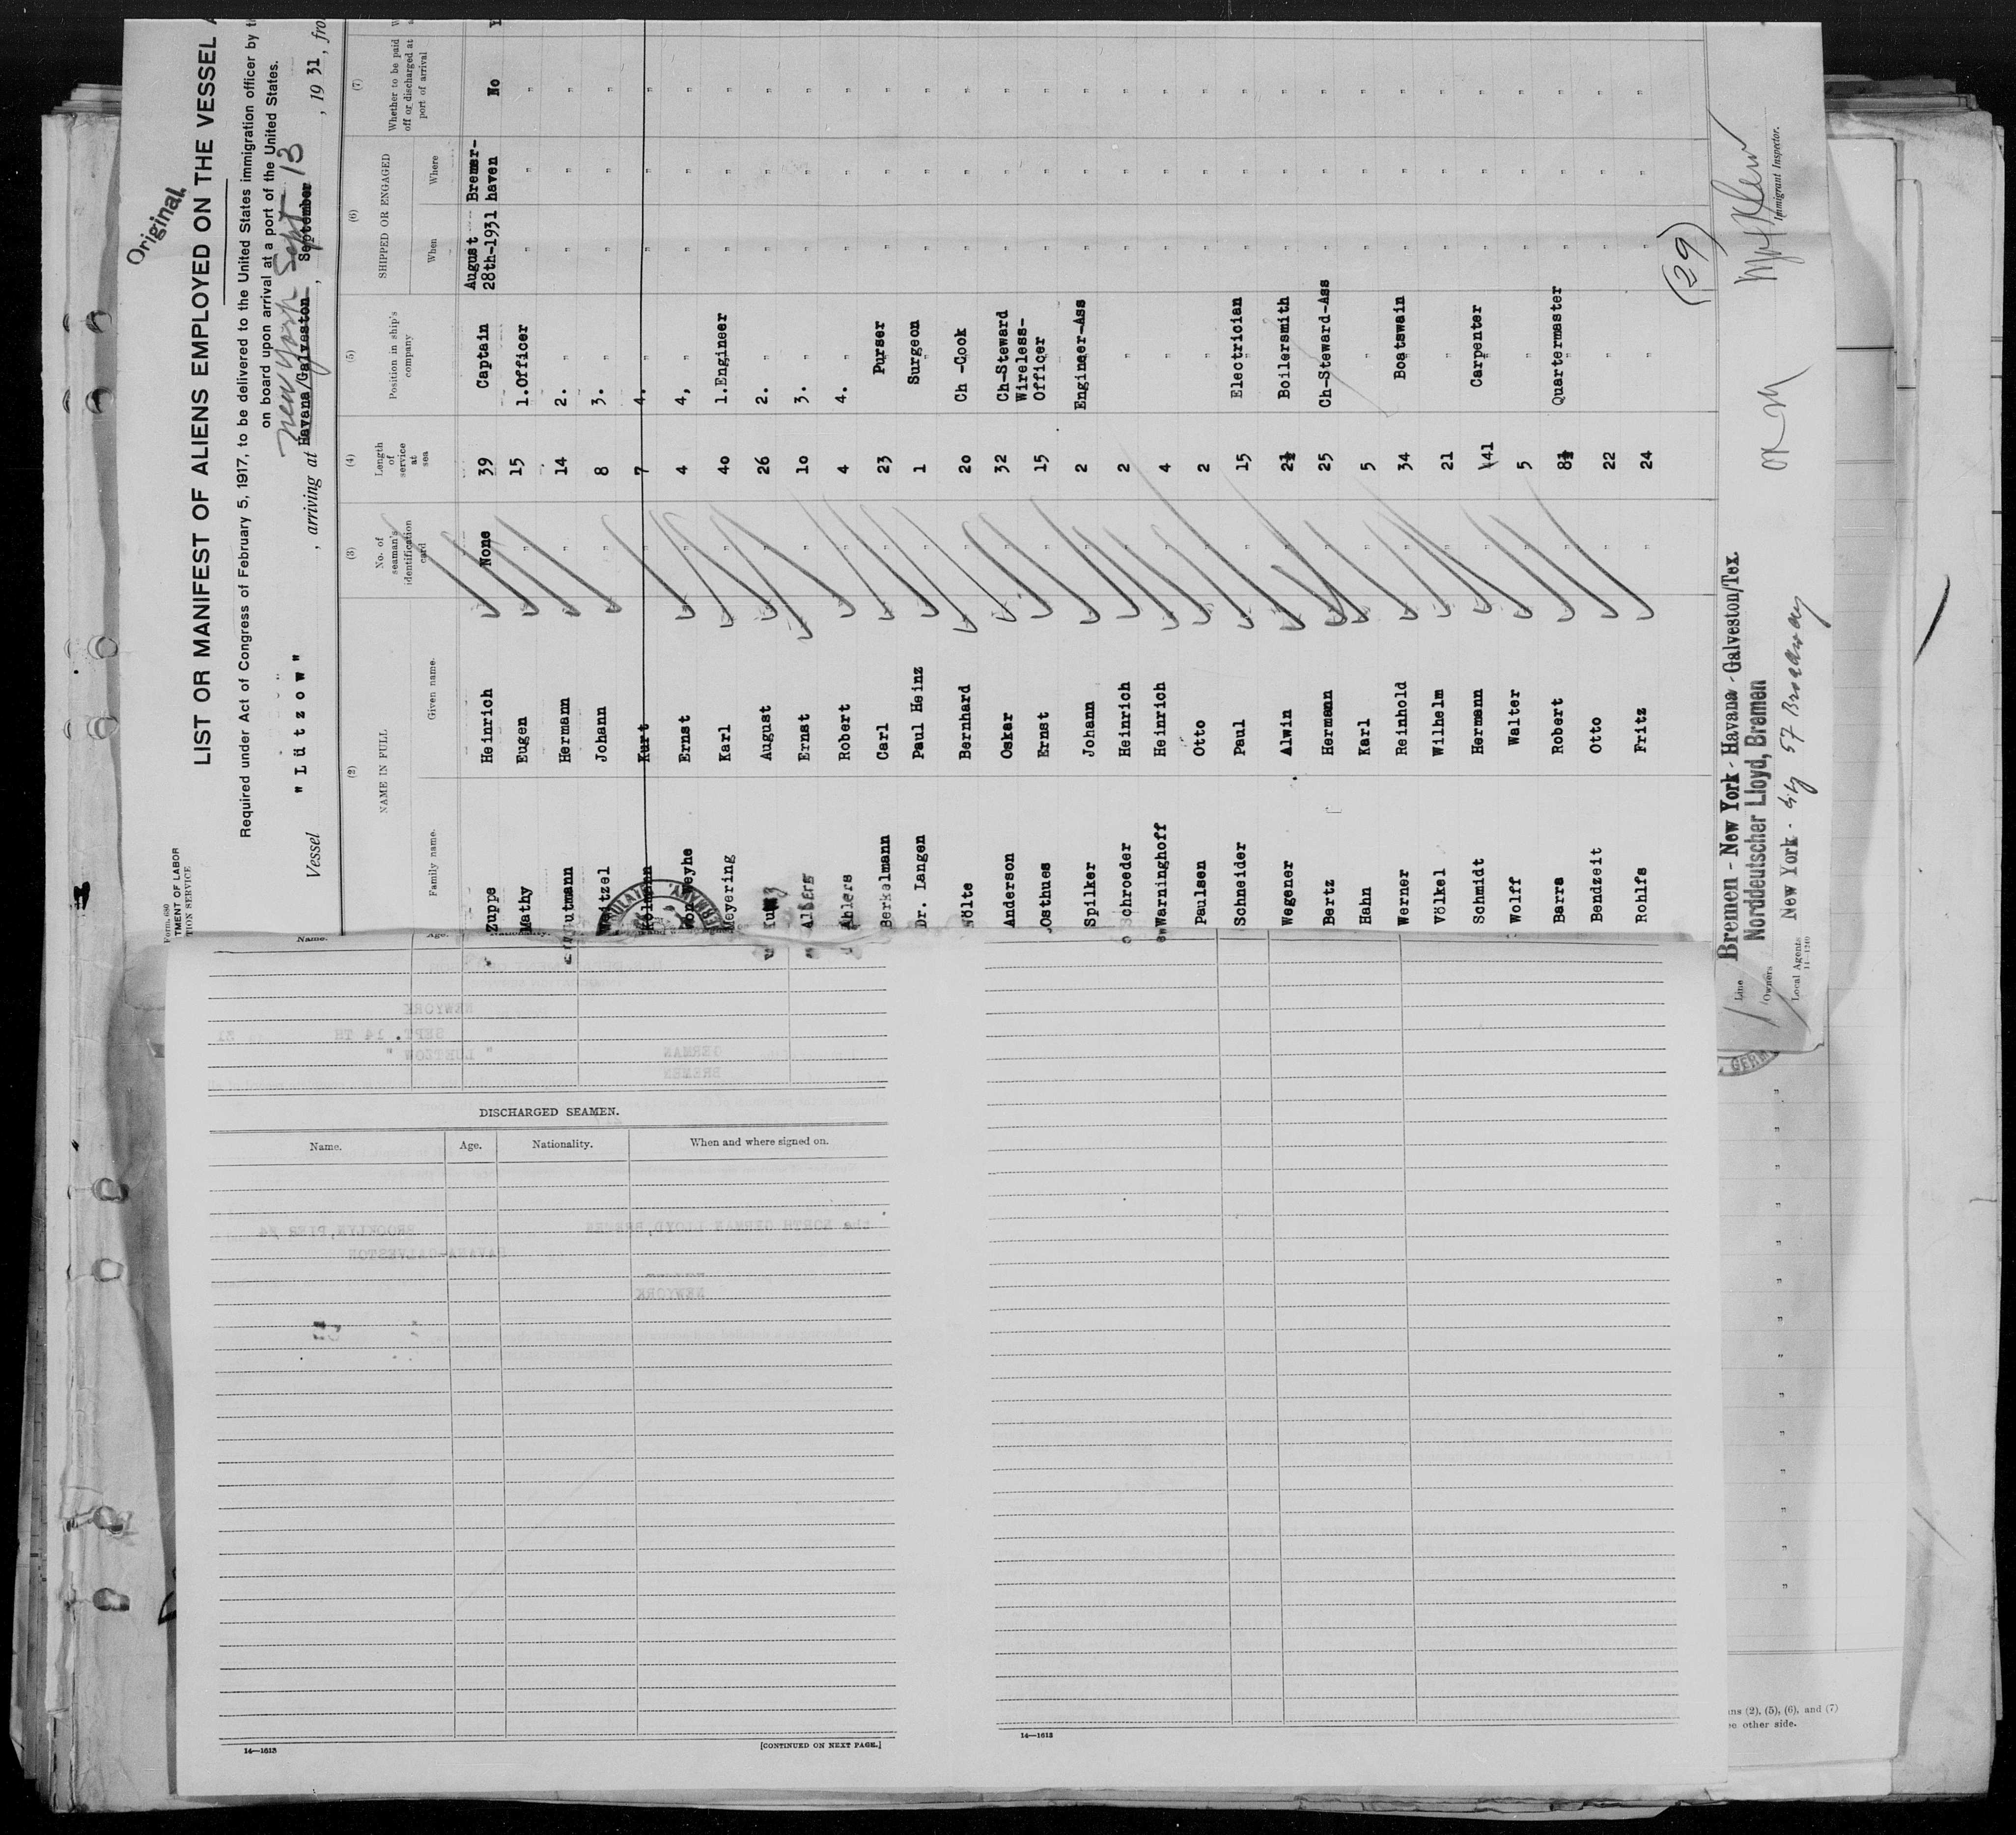 Original.
LIST OR MANIFEST OF ALIENS EMPLOYED ON THE VESSEL
Form 680
TMENT OF LABOR
TION SERVICE
Required under Act of Congress of February 5, 1917, to be delivered to the United States immigration officer by
on board upon arrival at a port of the United States.
New York Sept 13
Vessel "Lützow", arriving at Havana/Galveston, September, 1931, fro
(2) (3) (4) (5) (6) (7)
NAME IN FULL No. of seaman's identification card Length of service at sea Position in ship's company SHIPPED OR ENGAGED Whether to be paid off or discharged at port of arrival
Family name. Given name. When Where
Zuppe Heinrich None 39 Captain August 28th-1931 Bremer-haven No
Mathy Eugen " 15 1.Officer " " "
Gutmann Hermann " 14 2. " " " "
Weitzel Johann " 8 3. " " " "
Kölmann Kurt " 7 4. " " " "
von Weyhe Ernst " 4 4, " " " "
Meyering Karl " 40 1.Engineer " " "
August " 26 2. " " " "
Albers Ernst " 10 3. " " " "
Ahlers Robert " 4 4. " " " "
Berkelmann Carl " 23 Purser " " "
Dr. Langen Paul Heinz " 1 Surgeon " " "
Nölte Bernhard " 20 Ch-Cook " " "
Anderson Oskar " 32 Ch-Steward " " "
Osthues Ernst " 15 Wireless-Officer " " "
Spilker Johann " 2 Engineer-Ass " " "
Schroeder Heinrich " 2 " " " "
Warninghoff Heinrich " 4 " " " "
Paulsen Otto " 2 " " " "
Schneider Paul " 15 Electrician " " "
Wegener Alwin " 2½ Boilersmith " " "
Bertz Hermann " 25 Ch-Steward-Ass " " "
Hahn Karl " 5 " " " "
Werner Reinhold " 34 Boatswain " " "
Völkel Wilhelm " 21 " " " "
Schmidt Hermann " 41 Carpenter " " "
Wolff Walter " 5 " " " "
Barre Robert " 8½ Quartermaster " " "
Bendzeit Otto " 22 " " " "
Rohlfs Fritz " 24 " " " "
(29)
Line Bremen - New York - Havana - Galveston/Tex.
Owners Norddeutscher Lloyd, Bremen
Local Agents New York - City 57 Broadway
14-1240
Immigrant Inspector.
Name. Age. Nationality.
DISCHARGED SEAMEN.
Name. Age. Nationality. When and where signed on.
14—1613
[CONTINUED ON NEXT PAGE.]
14—1613
. GERM
ns (2), (5), (6), and (7)
e other side.